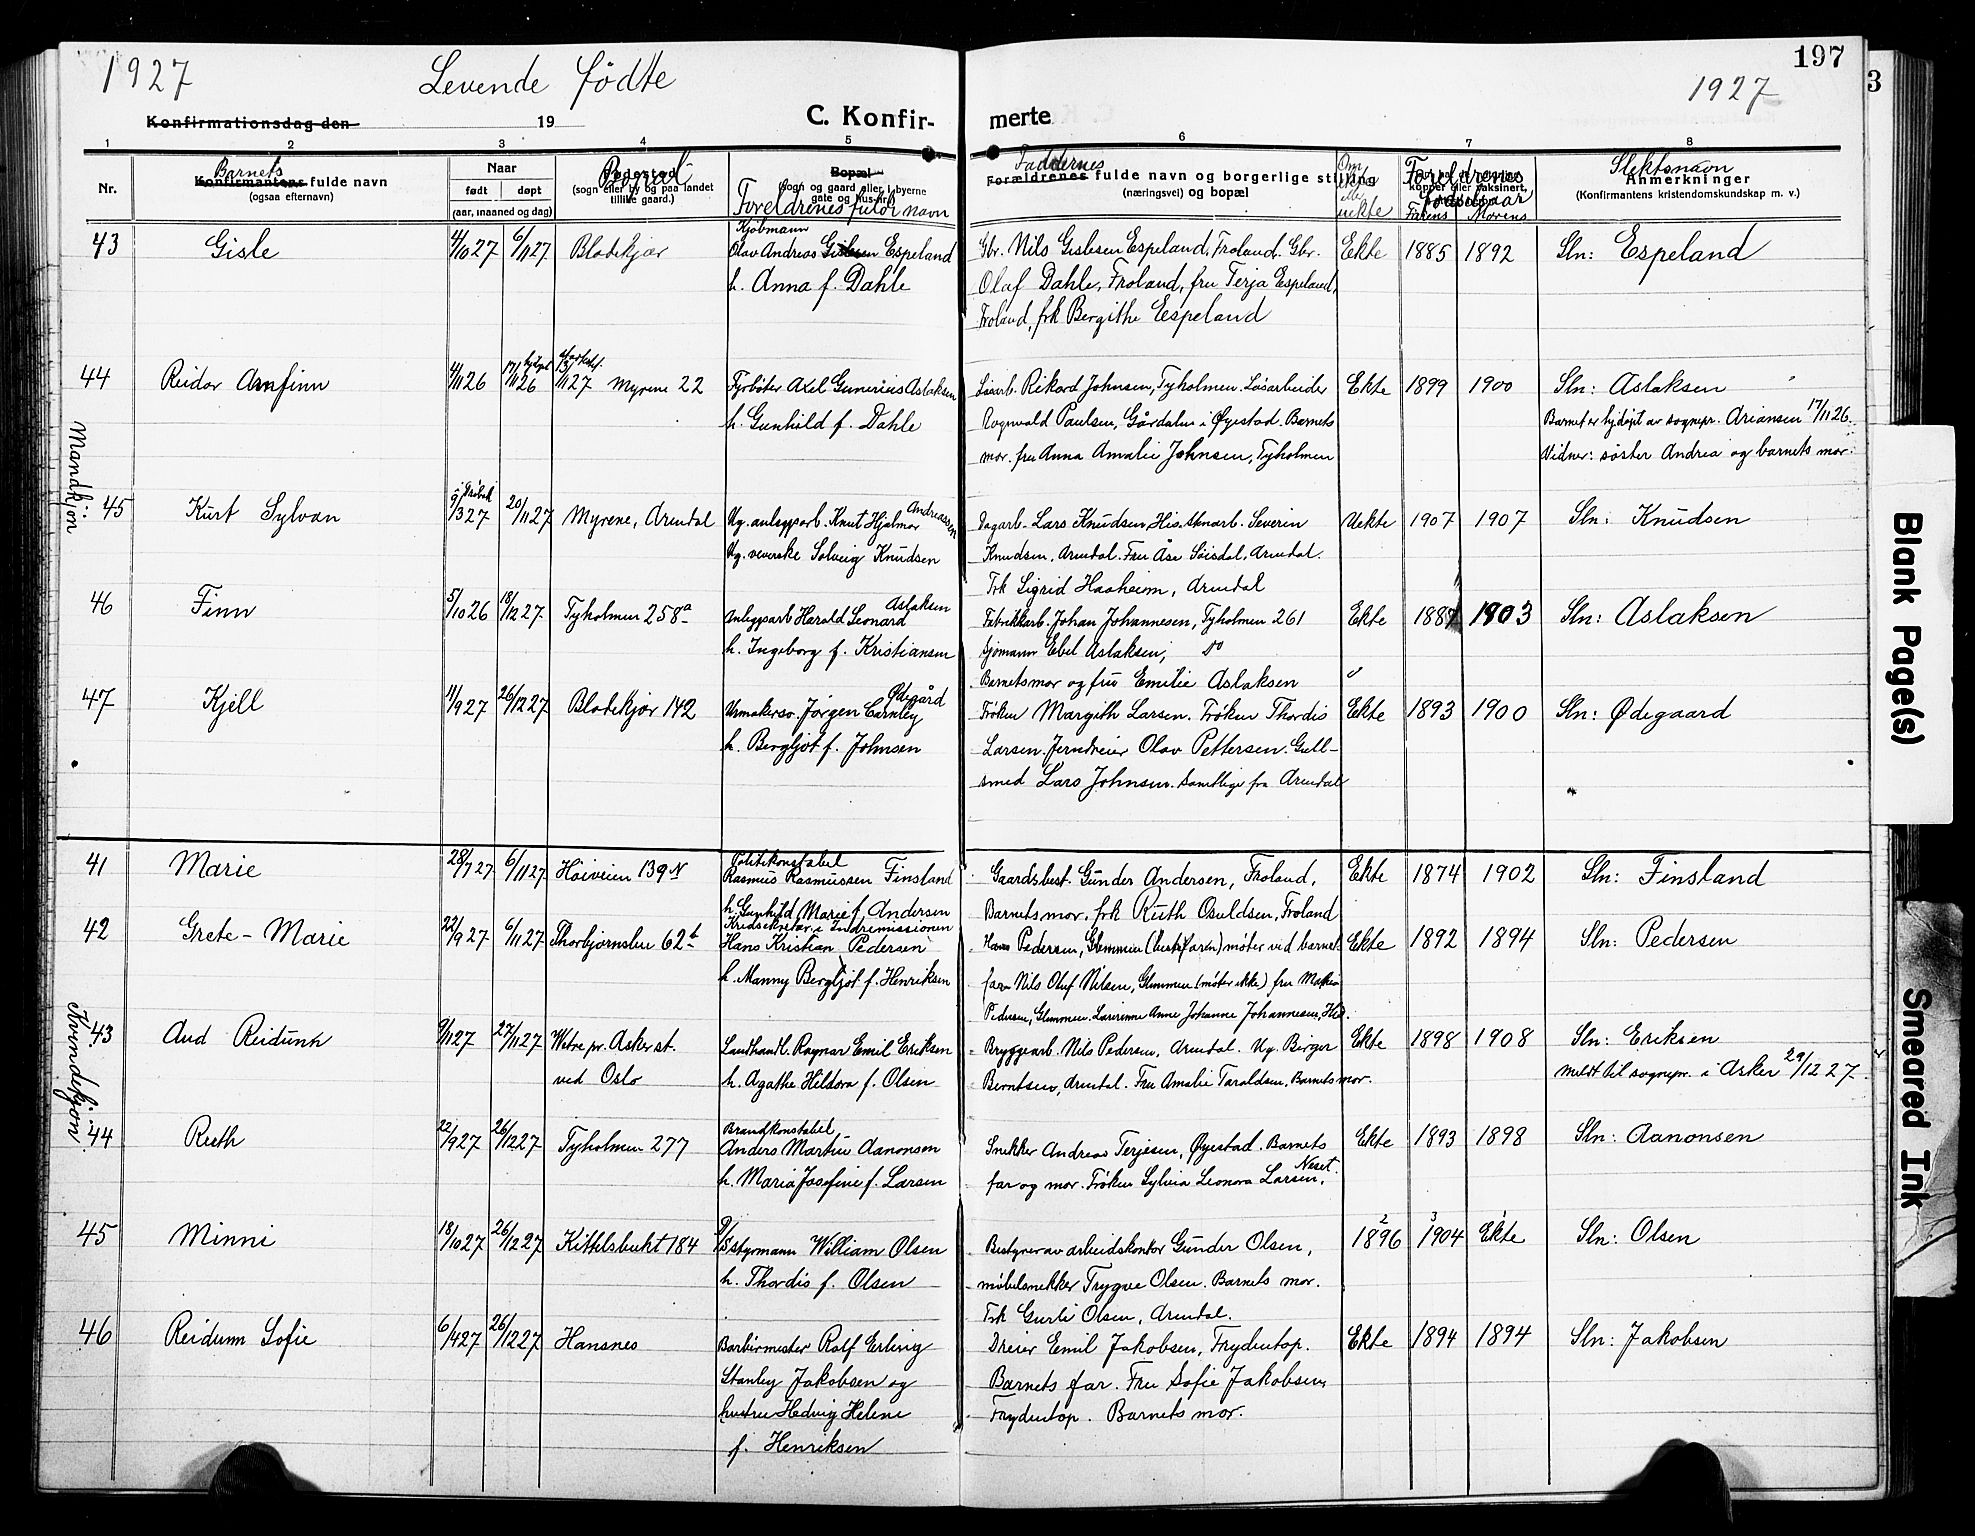 197
3
1927 Levende fødte 1927
Konfirmationsdag den 19 C. Konfir- merte
1 2 3 4 5 6 7 8
Nr.
Barnets
Konfirmantens fulde navn
(ogsaa efternavn)
Naar
født døpt
(aar, maaned og dag)
Bopæl
(sogn eller by og paa landet
tillike gaard.)
Bopæl
(sogn og gaard eller i byerne
gate og hus-nr.)
Foreldrenes fulde navn
Faddernes
Forældrenes fulde navn og borgerlige stilling
(næringsvei) og bopæl
Om ekte eller uekte
Foreldrenes
fødselsaar
Farens Morens
Slektsnavn
Anmerkninger
(Konfirmantens kristendomskundskap m. v.)
Mandkjøn
43 Gisle 4/10 27 6/11 27 Blødekjær
Kjøbmann
Olav Andreas Gislesen Espeland
h. Anna f. Dahle
Gbr. Nils Gislesen Espeland, Froland. Gbr.
Olaf Dahle, Froland, fru Terja Espeland,
Froland, frk Bergithe Espeland
Ekte 1885 1892 Sln: Espeland
44 Reidar Arnfinn 4/11 26 17/11 26 13/11 27 Myrene 22
Fyrbøter Axel Gunerius Aslaksen
h. Gunhild f. Dahle
Løsarb. Rikard Johnsen, Tyholmen. Løsarbeider
Rognvald Paulsen, Gårdalen i Øyestad. Barnets
mor. fru Anna Amalie Johnsen, Tyholmen
Ekte 1899 1900 Sln: Aslaksen
Barnet er hjdøpt av sognepr. Ariansen 17/11 26.
Vidner: søster Andrea og barnets mor.
45 Kurt Sylvan 9/3 27 20/11 27 Myrene, Arendal
Ug. anleggsarb. Knut Hjalmar Andreassen
Ug. veverske Solveig Knudsen
Dagarb. Lars Knudsen, His. Severin
Knudsen, Arendal. Fru Åse Arendal.
Frk Sigrid Haaheim, Arendal
Uekte 1907 1907 Sln: Knudsen
46 Finn 5/10 26 18/12 27 Tyholmen 258a
Anleggsarb Harald Leonard Aslaksen
h. Ingeborg f. Kristiansen
Fabrikkarb. Johan Johannesen, Tyholmen 261
Sjømann Ebel Aslaksen, do
Barnets mor og fru Emilie Aslaksen
Ekte 1903 Sln: Aslaksen
47 Kjell 11/9 27 26/12 27 Blødekjær 142
Urmakersv. Jørgen Carnley Ødegård
h. Bergljot f. Johnsen
Frøken Margith Larsen. Frøken Thordis
Larsen. Jerndreier Olav Pettersen. Gull-
smed Lars Johnsen. samtlige fra Arendal
Ekte 1893 1900 Sln: Ødegaard
Kvindekjøn.
41 Marie 28/7 27 6/11 27 Høiveien 139N
Politikonstabel
Rasmus Rasmussen Finsland
h. Gunhild Marie f. Andersen
Gaardsbest. Gunder Andersen, Froland,
Barnets mor. frk Ruth Osuldsen, Froland
Ekte 1874 1902 Sln: Finsland
42 Grete-Marie 22/9 27 6/11 27 Thorbjørnsbu 62b
Kredssekretær i Indremissionen
Hans Kristian Pedersen
h. Manny Bergljot f. Henriksen
Hans Pedersen, Glemmen (bestefaren) møter ved barnets
far Nils Oluf Nilsen, Glemmen (møter ikke) fru
Pedersen, Glemmen. Lærerinne Anne Johanne Johannesen,
Ekte 1892 1894 Sln: Pedersen
43 Aud Reidunn 9/11 27 27/11 27 Wetre pr. Asker st.
ved Oslo
Landhandl. Ragnar Emil Eriksen
h. Agathe Hildora f. Olsen
Bryggearb. Nils Pedersen, Arendal. Ug. Birger
Berntsen, Arendal. Fru Amalie Taraldsen, Barnets mor.
Ekte 1898 1908 Sln: Eriksen
meldt til sognepr. i Asker 29/12 27
44 Ruth 22/9 27 26/12 27 Tyholmen 277
Brandkonstabel
Anders Martin Aanonsen
h. Maria Josefine f. Larsen
Snekker Andreas Terjesen, Øyestad. Barnets
far og mor. Frøken Sylvia Leonora Larsen, Neset.
Ekte 1893 1898 Sln: Aanonsen
45 Minni 18/10 27 26/12 27 Kittelsbukt 184
Styrmann William Olsen
h. Thordis f. Olsen
Bestyrer av arbeidskontor Gunder Olsen,
møbelsnekker Trygve Olsen. Barnets mor.
Frk Gurli Olsen, Arendal.
2 1896 3 1904 1 Ekte Sln: Olsen
46 Reidunn Sofie 6/4 27 26/12 27 Hansnes
Barbermester Rolf Erling
Stanley Jakobsen og
hustru Hedvig Helene
f. Henriksen
Dreier Emil Jakobsen, Frydentop.
Barnets far. Fru Sofie Jakobsen,
Frydentop. Barnets mor.
Ekte 1894 1894 Sln: Jakobsen
Blank Page(s)
Smeared Ink